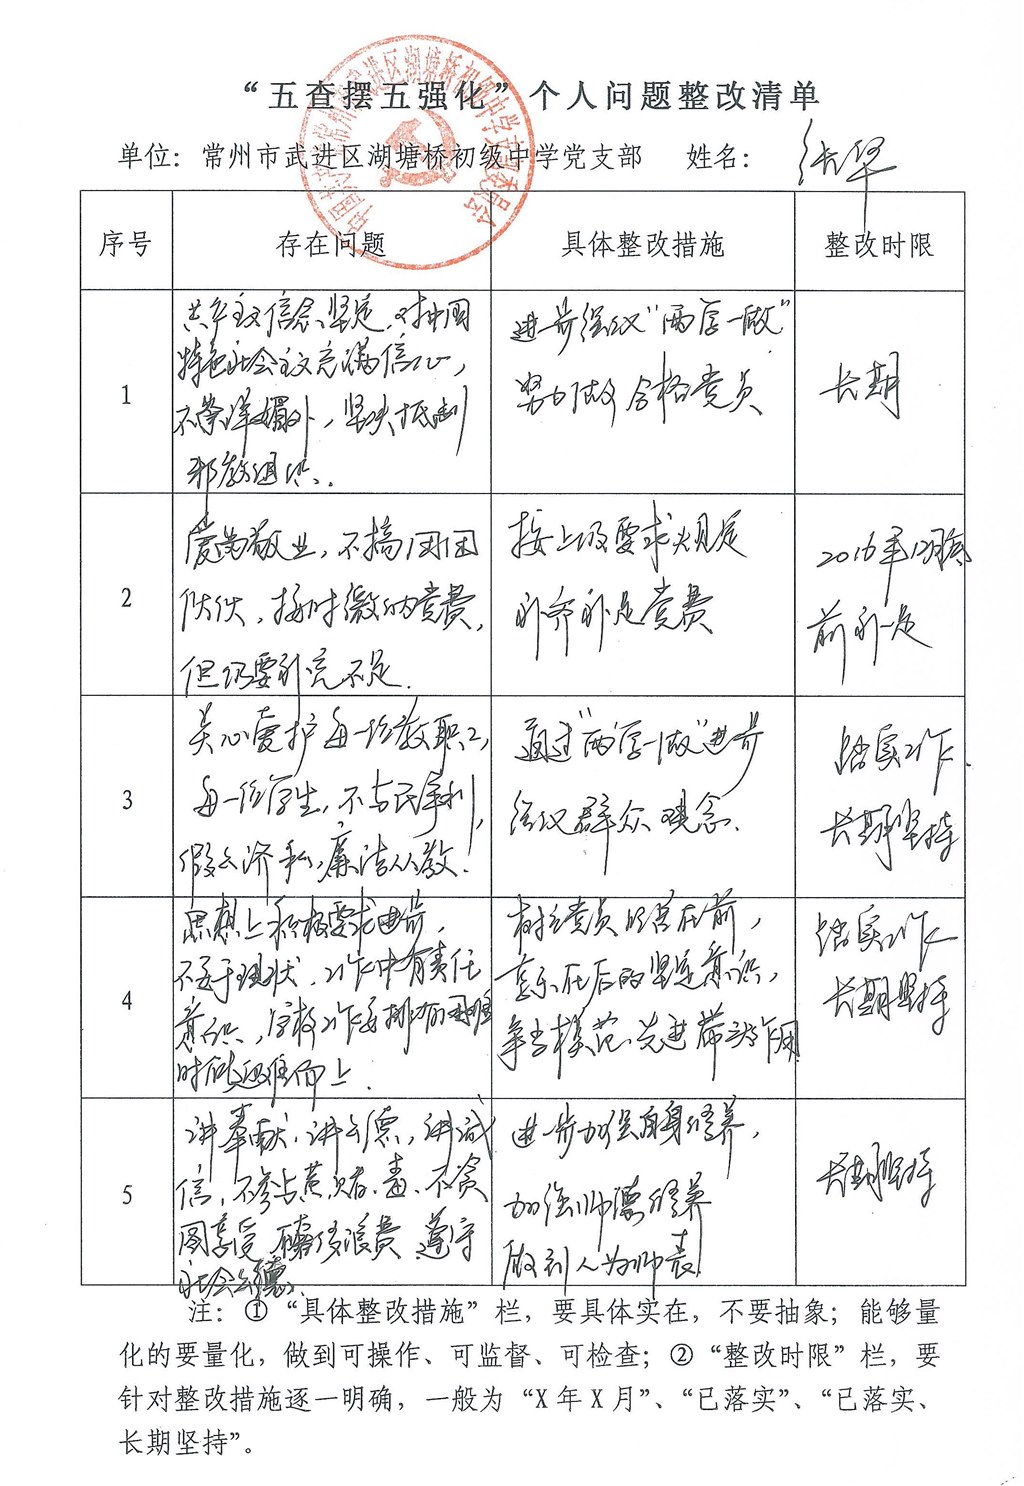 “五查摆五强化”个人问题整改清单
单位：常州市武进区湖塘桥初级中学党支部 姓名：
序号 存在问题 具体整改措施 整改时限
1
共产主义信念坚定，对中国
特色社会主义充满信心，
不崇洋媚外，坚决抵制
邪教组织。
进一步强议“两学一做”
努力做合格党员
长期
2
爱岗敬业，不搞团团
伙伙，按时缴纳党费，
但仍要补充不足.
按上级要求规定
补齐补足党费
2016年12月底
前补足
3
关心爱护每一位教职工，
每一位学生，不与民争利，
假公济私，廉洁从教.
通过“两学一做”进一步
强议群众观念.
落实工作.
长期坚持
4
思想上积极要求进步，
不安于现状，工作中有责任
意识，学校工作安排有困难
时能迎难而上.
树立党员吃苦在前，
享乐在后的坚定意识，
争当模范、先进带头作用
落实工作
长期坚持
5
讲奉献，讲公德，讲诚
信，不参与黄、赌、毒、不贪
图享受 铺张浪费 遵守
社会公德.
进一步加强自身修养，
加强师德修养
做到人为师表
长期坚持
注：①“具体整改措施”栏，要具体实在，不要抽象；能够量
化的要量化，做到可操作、可监督、可检查；②“整改时限”栏，要
针对整改措施逐一明确，一般为“X年X月”、“已落实”、“已落实、
长期坚持”。